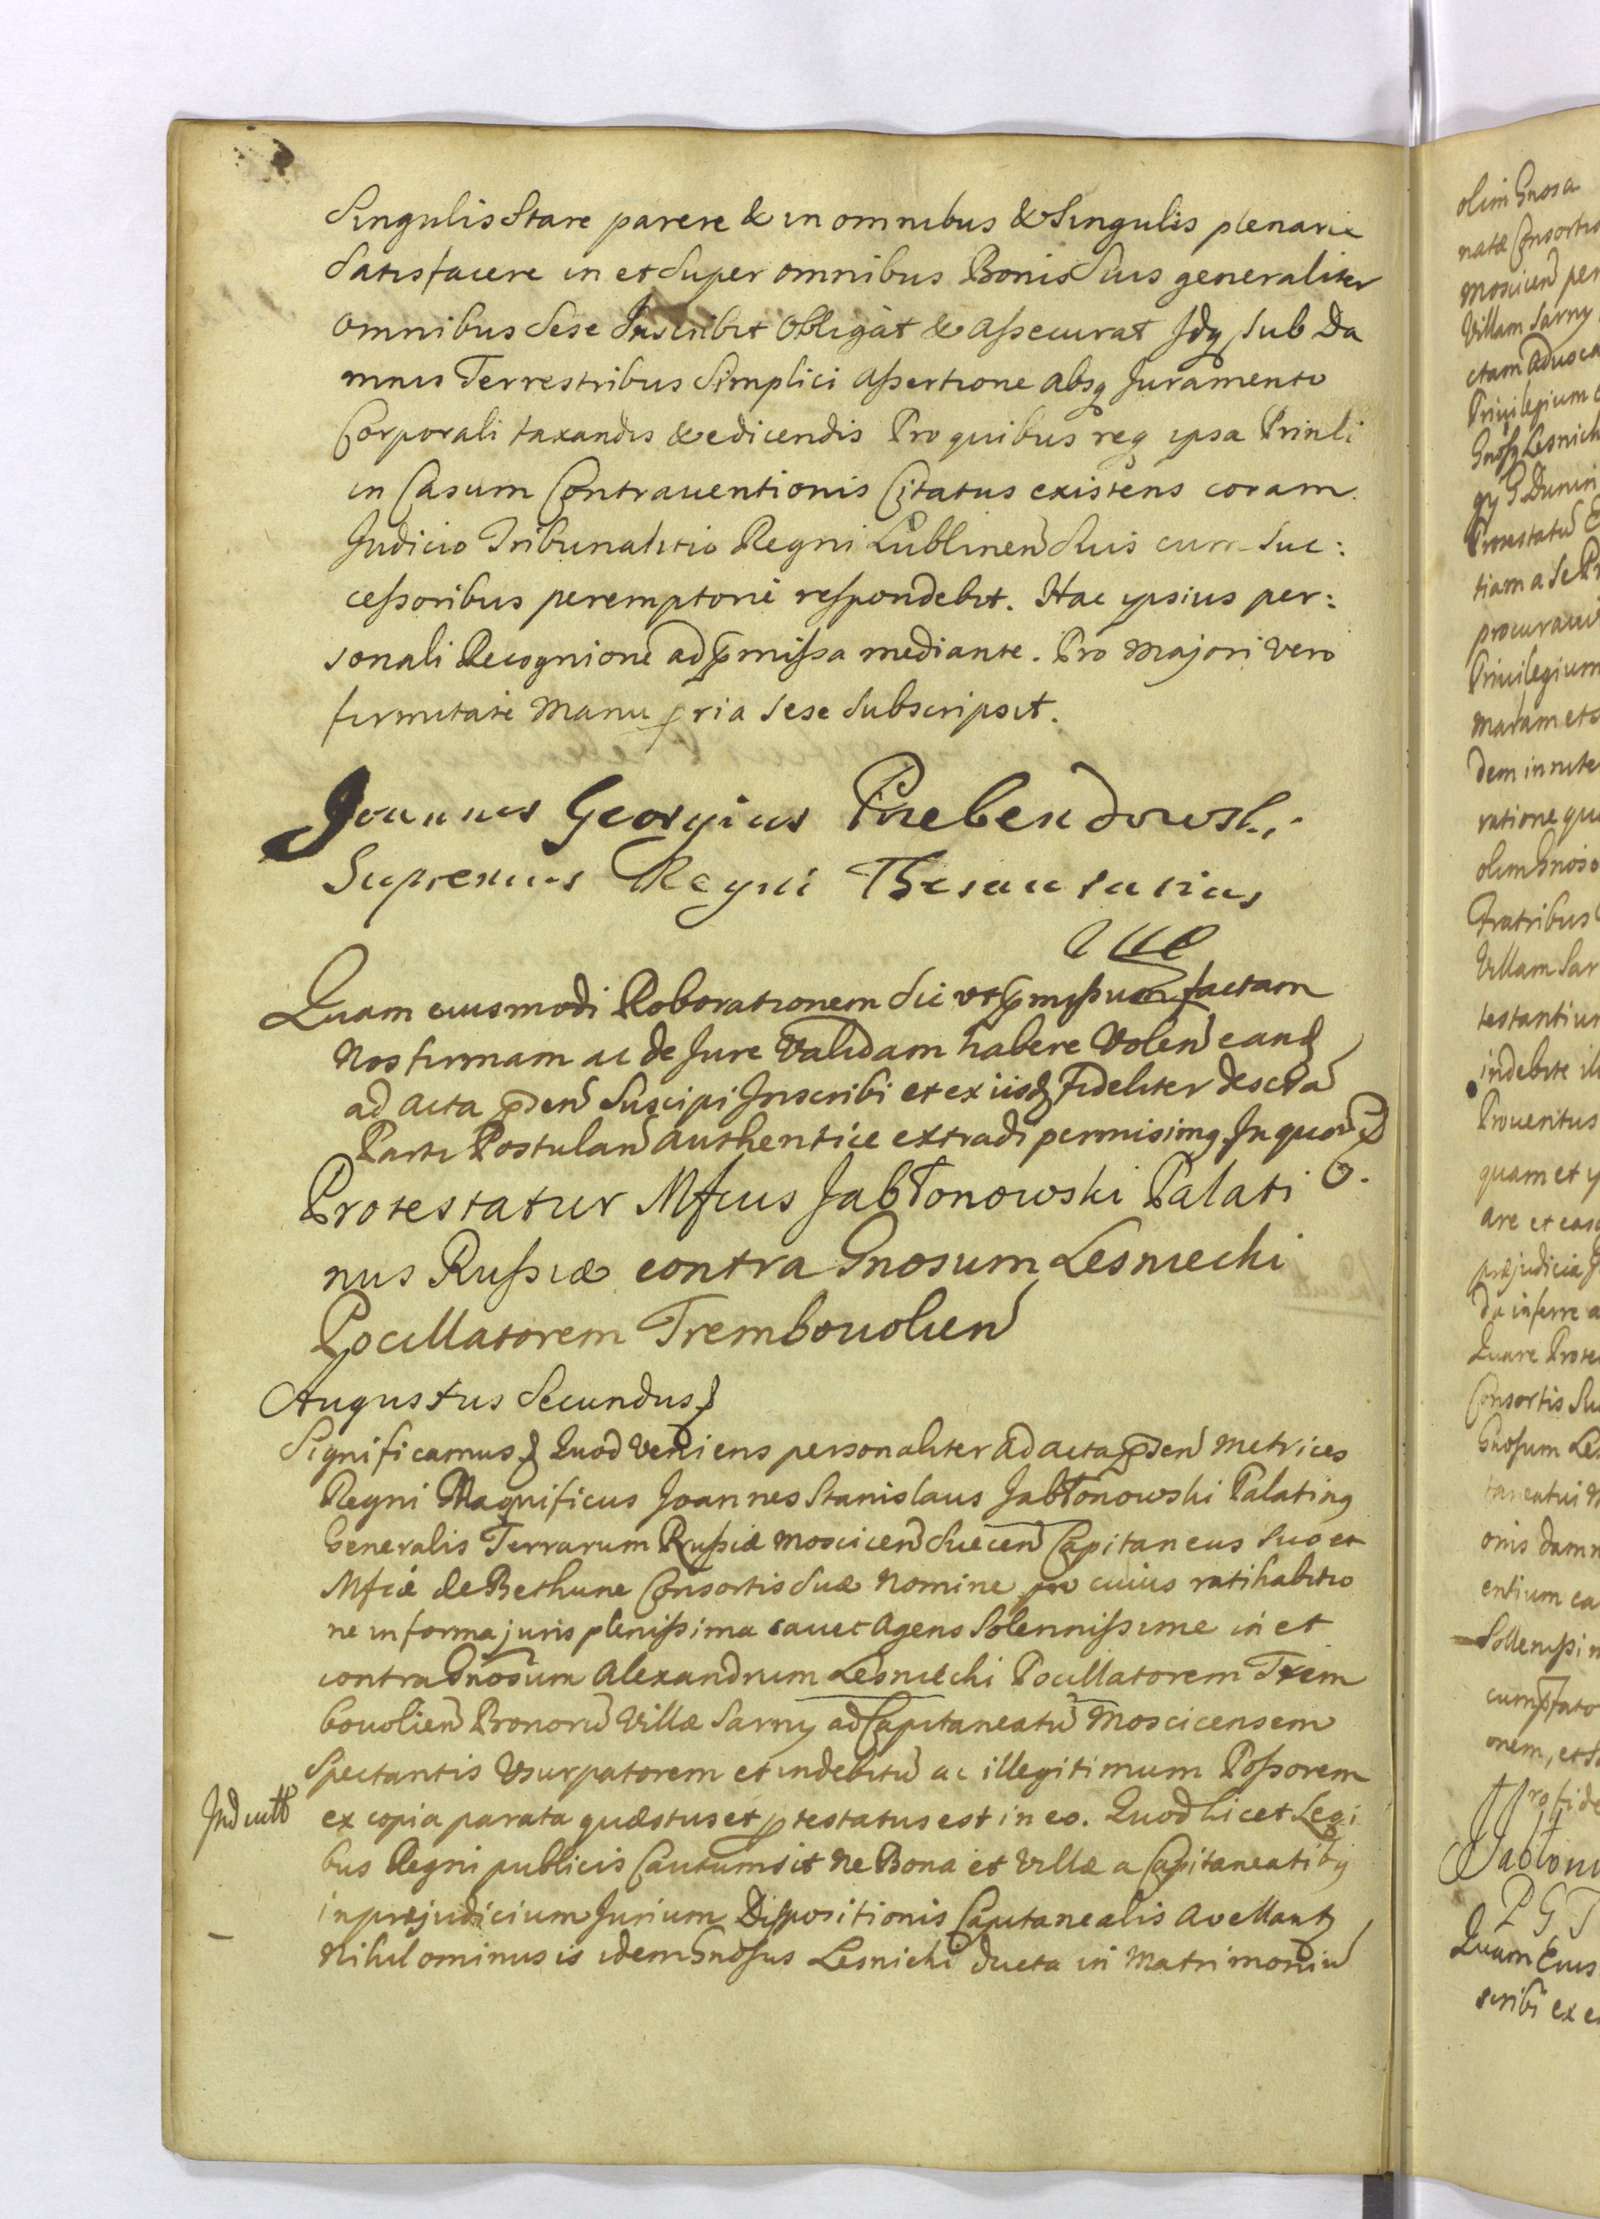 Singulis Stare parere & in omnibus & Singulis plenarie
Satisfacere in et Super omnibus Bonis Suis generaliter
omnibus Sese Inscribit Obligat & assecurat Idq Sub Da
mnis Terrestribus Simplici assertione absq Juramento
Corporali taxandis & edicendis Pro quibus req ipsa Prinli
in Casum Contrauentionis Citatus existens coram
Judicio Tribunalitio Regni Lublinen Suis cum Suc:
cessoribus peremptorie respondebit. Hac ypsius per:
sonali Recognione ad pmissa mediante. Pro Majori vero
firmitate Manu pria sese Subscripsit.
Joannes Georgius Przebendowski
Supremus Regni Thesaurarius
Quam eiusmodi Roborationem Sic vt pmissum factam
Nos firmam ac de Jure Validam habere Volen eand
ad acta pden Suscipi Inscribi et ex iisd fideliter descta
Parti Postulan authentice extradi permisimq. In quor
Protestatur Mfcus Jabłonowski Palati
nus Russiæ contra Gnosum Lesniecki
Pocillatorem Trembouolien
Augustus Secundus
Significamus Quod Veniens personaliter ad acta pden Metrices
Regni Magnificus Joannes Stanislaus Jabłonowski Palatinq
Generalis Terrarum Russiæ Moscicen Suecen Capitaneus Suo et
Mfcæ de Bethune Consortis Suæ Nomine pro cuius ratihabitio
ne in forma juris plenissima cauet Agens Solennissime in et
contra Gnosum Alexandrum Lesniecki Pocillatorem Trem
bouolien Bonoru Villæ Sarny ad Capitaneatu Moscicensem
Spectantis Vsurpatorem et indebitu ac illegitimum Possorem
ex copia parata quæstus et ptestatus est in eo. Quod licet Legi
bus Regni publicis Cautum sit ne Bona et Villæ a Capitaneatibq
in præjudicium Jurium Dispositionis Capitanealis avellant
Nihilominus is idem Gnosus Lesnicki ducta in Matrimoniu
olim Gnosa
natæ Consortis
Moscicen per
Villam Sarny
Priuilegium
Protestatu
tiam a Se
Priuilegium
ratione
olim Gnoso
Fratribus
Villam Sar
testantium
indebite
Prouentus
quam et
are et
præjudicia
inferre
Quare Prote
Consortis Su
Gnosum Les
onis damn
Quam Eius
scribi ex